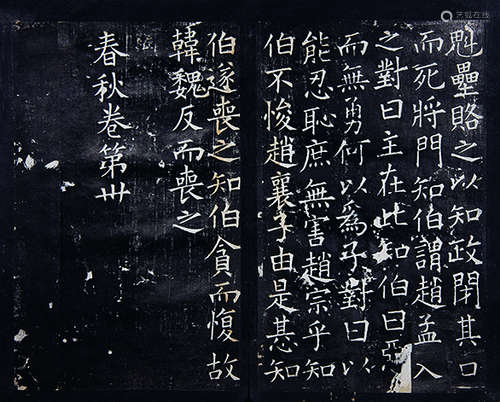 魁壘賂之以知政閉其口
而死將門知伯謂趙孟入
之對曰主在此知伯曰惡
而無勇何以爲子對曰以
能忍恥庶無害趙宗乎知
伯不悛趙襄子由是惎知
伯遂喪之知伯貪而愎故
韓魏反而喪之
春秋卷第卅